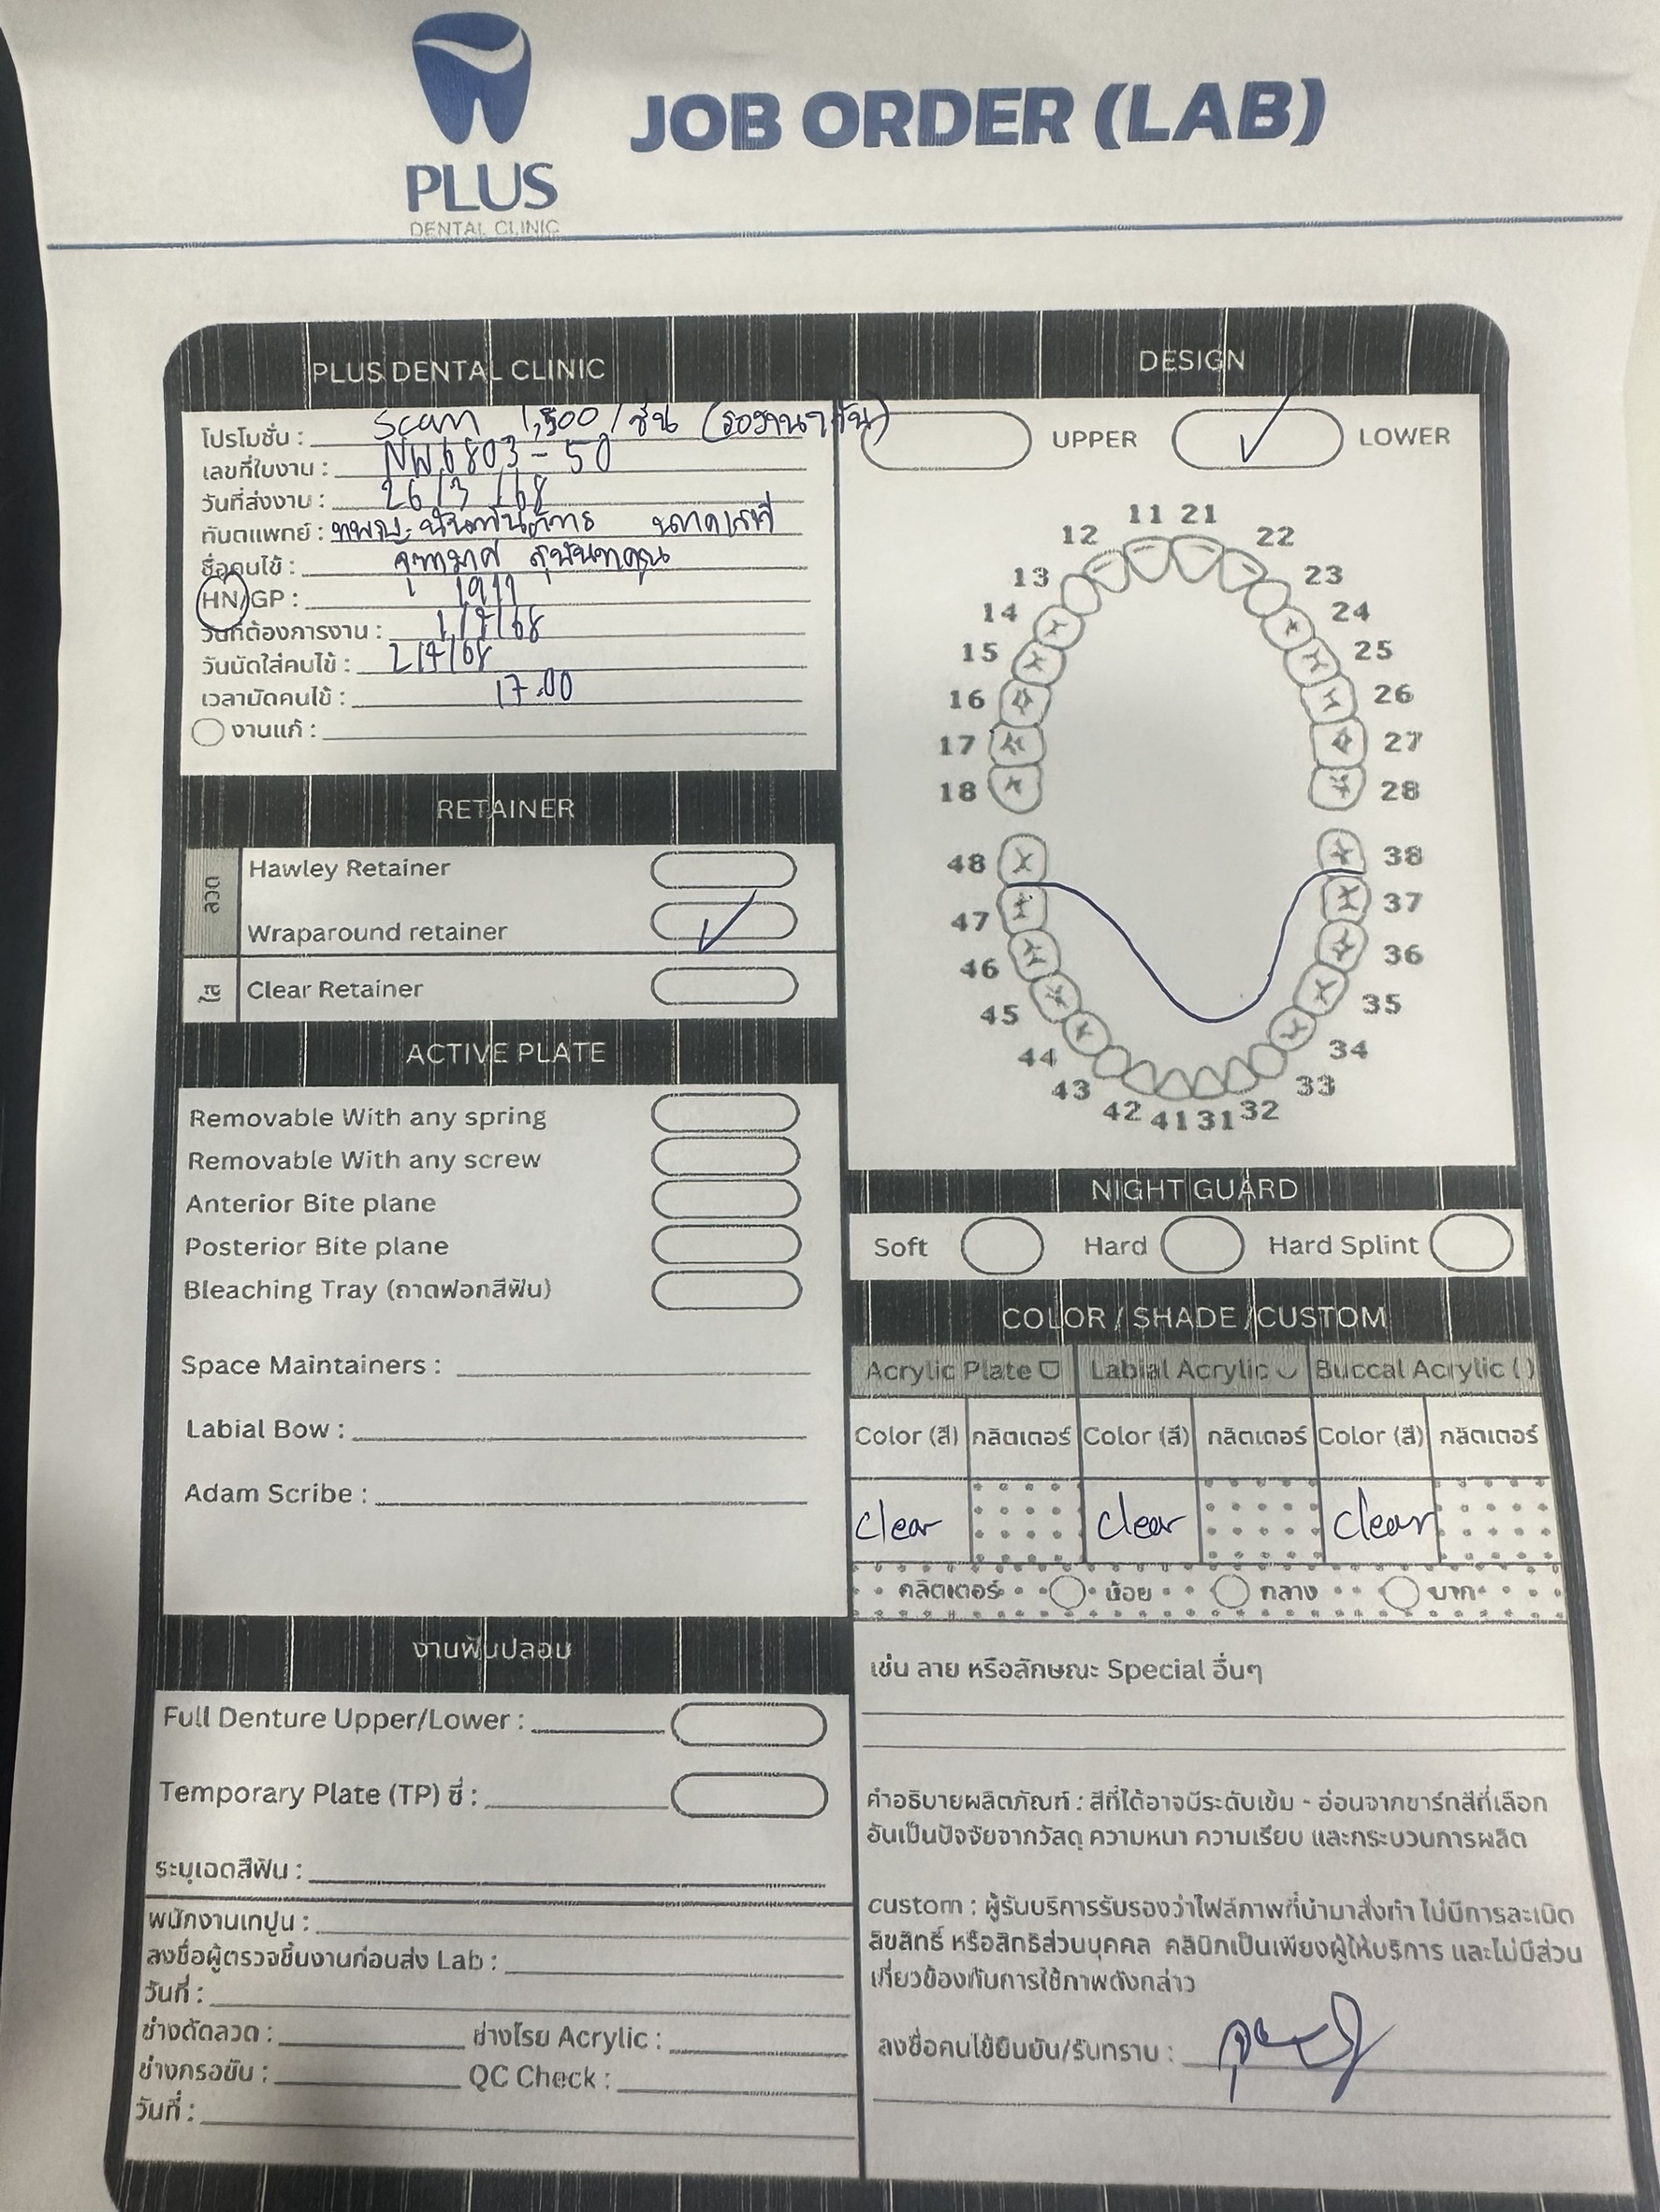 PLUS
DENTAL CLINIC
JOB ORDER (LAB)
PLUS DENTAL CLINIC
โปรโมชั่น : Scan 1,500 / ชิ้น
เลขที่ใบงาน : NW6803-50
วันที่ส่งงาน : 26/3/68
ทันตแพทย์ :
ชื่อคนไข้ :
HN/GP : 1911
วันที่ต้องการงาน : 1/4/68
วันนัดใส่คนไข้ : 2/4/68
เวลานัดคนไข้ : 17.00
งานแก้ :
RETAINER
ลวด
Hawley Retainer
Wraparound retainer
ใส
Clear Retainer
ACTIVE PLATE
Removable With any spring
Removable With any screw
Anterior Bite plane
Posterior Bite plane
Bleaching Tray (ถาดฟอกสีฟัน)
Space Maintainers :
Labial Bow :
Adam Scribe :
งานฟันปลอม
Full Denture Upper/Lower :
Temporary Plate (TP) ซี่ :
ระบุเฉดสีฟัน :
พนักงานเทปูน :
ลงชื่อผู้ตรวจชิ้นงานก่อนส่ง Lab :
วันที่ :
ช่างดัดลวด : ช่างโรย Acrylic :
ช่างกรอขัน : QC Check :
วันที่ :
DESIGN
UPPER LOWER
11 21
12 22
13 23
14 24
15 25
16 26
17 27
18 28
48 38
47 37
46 36
45 35
44 34
43 33
42 41 31 32
NIGHT GUARD
Soft Hard Hard Splint
COLOR / SHADE /CUSTOM
Acrylic Plate Labial Acrylic Buccal Acrylic ( )
Color (สี) กลิตเตอร์ Color (สี) กลิตเตอร์ Color (สี) กลิตเตอร์
Clear Clear Clear
กลิตเตอร์ น้อย กลาง มาก
เช่น ลาย หรือลักษณะ Special อื่นๆ
คำอธิบายผลิตภัณฑ์ : สีที่ได้อาจมีระดับเข้ม - อ่อนจากชาร์ทสีที่เลือก
อันเป็นปัจจัยจากวัสดุ ความหนา ความเรียบ และกระบวนการผลิต
custom : ผู้รับบริการรับรองว่าไฟล์ภาพที่นำมาสั่งทำ ไม่มีการละเมิด
ลิขสิทธิ์ หรือสิทธิส่วนบุคคล คลินิกเป็นเพียงผู้ให้บริการ และไม่มีส่วน
เกี่ยวข้องกับการใช้ภาพดังกล่าว
ลงชื่อคนไข้ยืนยัน/รับทราบ :